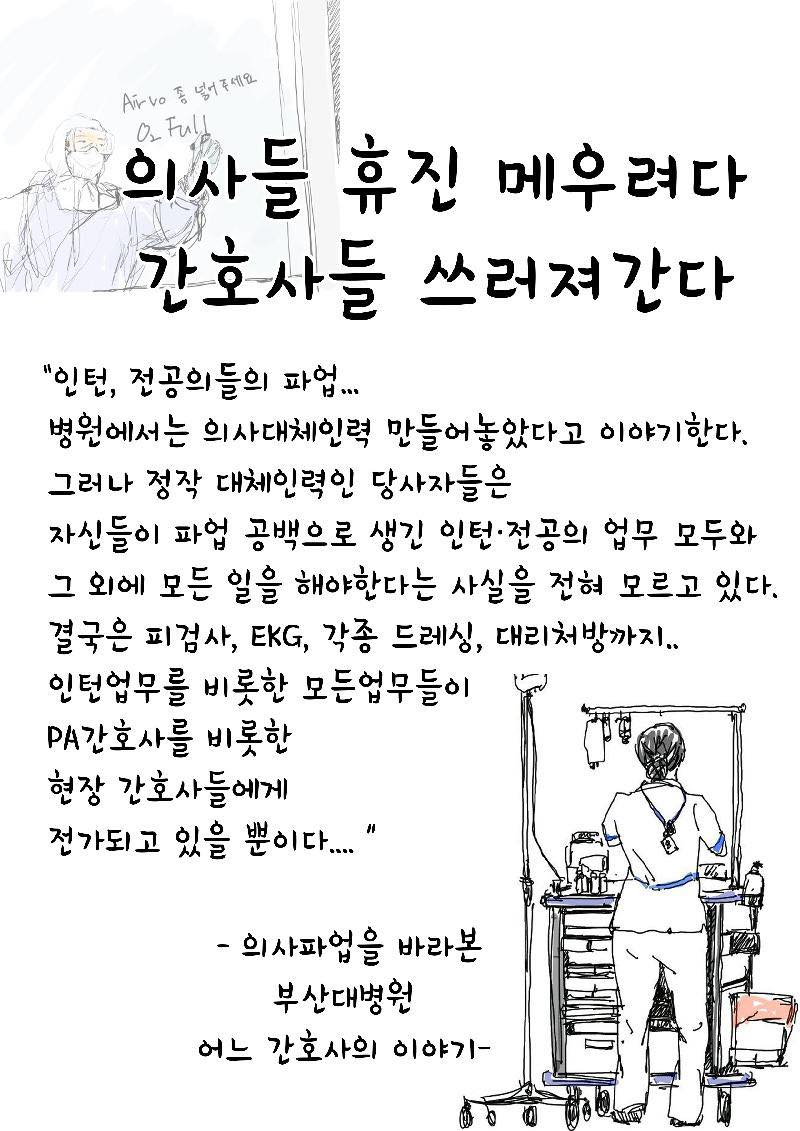 Airvo 좀 넣어주세요
O₂ Full!
의사들 휴진 메우려다
간호사들 쓰러져간다
"인턴, 전공의들의 파업...
병원에서는 의사대체인력 만들어놓았다고 이야기한다.
그러나 정작 대체인력인 당사자들은
자신들이 파업 공백으로 생긴 인턴·전공의 업무 모두와
그 외에 모든 일을 해야한다는 사실을 전혀 모르고 있다.
결국은 피검사, EKG, 각종 드레싱, 대리처방까지..
인턴업무를 비롯한 모든업무들이
PA간호사를 비롯한
현장 간호사들에게
전가되고 있을 뿐이다.... "
- 의사파업을 바라본
부산대병원
어느 간호사의 이야기-